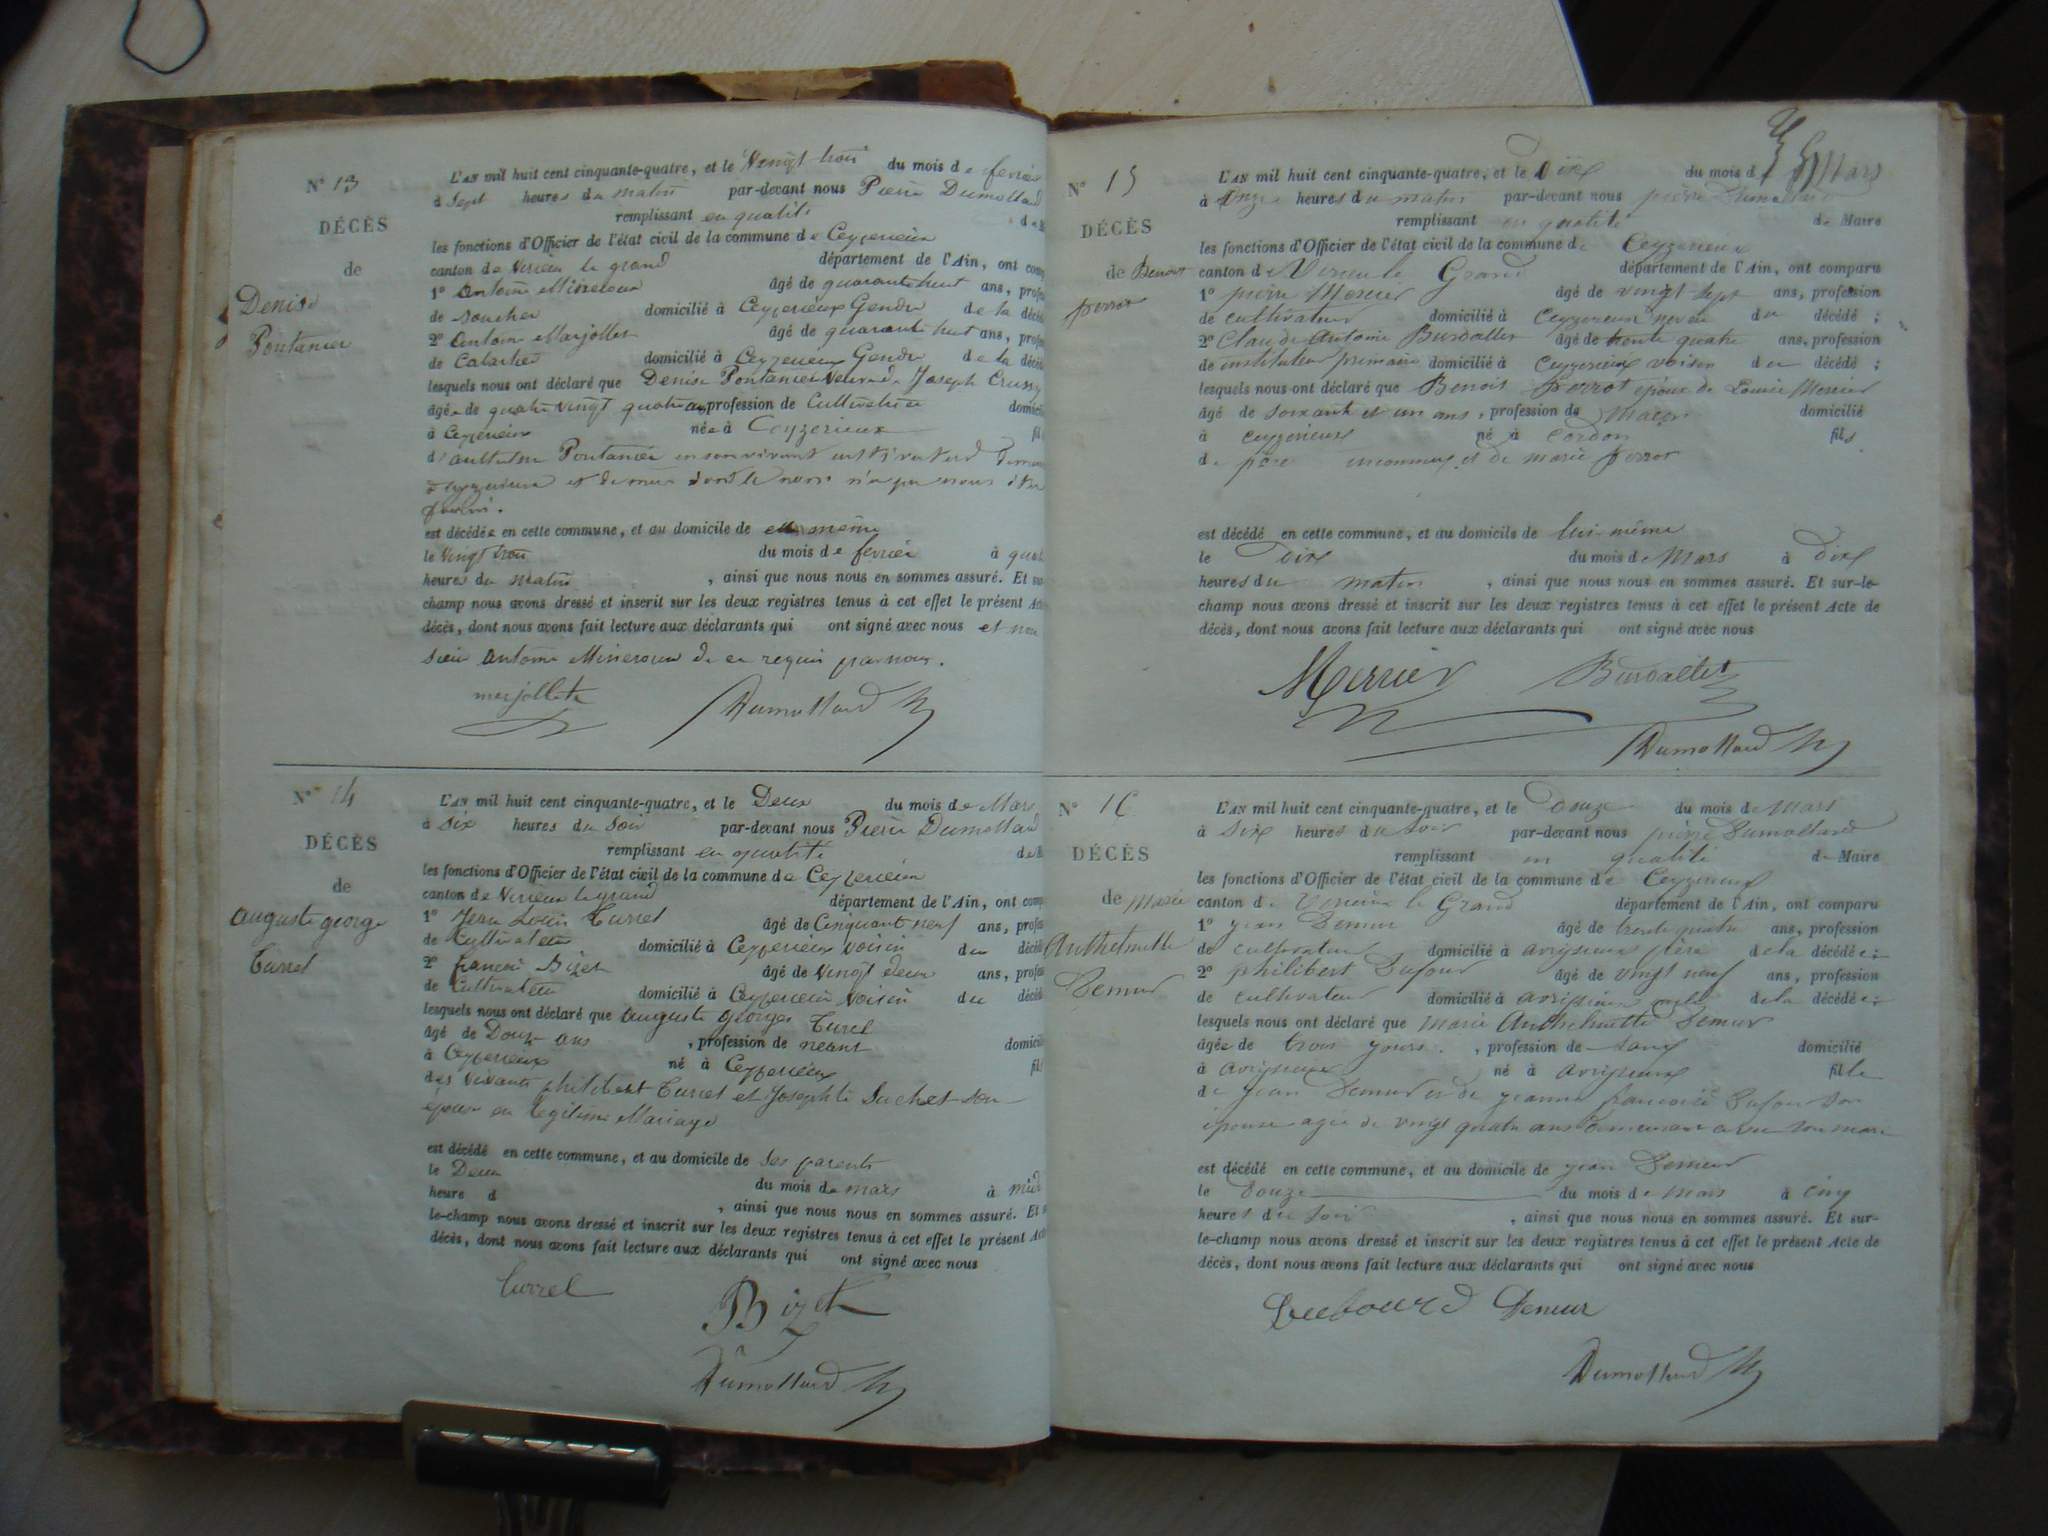 N° 13
DÉCÈS
de
Denise
Pontanier
L'AN mil huit cent cinquante-quatre, et le Vingt trois du mois de fevrier
à sept heures du matin par-devant nous Pierre Dumollard
remplissant en qualité de
les fonctions d'Officier de l'état civil de la commune de Ceyzerieux
canton de Virieu le grand département de l'Ain, ont comp
1° Antoine âgé de quarante huit ans, profes
de domicilié à Ceyzerieux Gendre de la décéd
2° Antoine Marjollet âgé de quarante huit ans, profes
de domicilié à Ceyzerieux Gendre de la décéd
lesquels nous ont déclaré que Denise Pontanier Veuve de Joseph
âgée de quatre vingt quatre ans, profession de Cultivatrice domicil
à Ceyzerieux née à Ceyzerieux
d' Pontanier en son vivant
et de mere dont le nom n'a pu nous être
est décédée en cette commune, et au domicile de elle même
le Vingt trois du mois de fevrier à quat
heures du matin , ainsi que nous nous en sommes assuré. Et sur
champ nous avons dressé et inscrit sur les deux registres tenus à cet effet le présent Acte
décès, dont nous avons fait lecture aux déclarants qui ont signé avec nous et non
Antoine de ce requis par nous.
marjollet Dumollard
N° 14
DÉCÈS
de
auguste george
Turrel
L'AN mil huit cent cinquante-quatre, et le Deux du mois de Mars
à six heures du soir par-devant nous Pierre Dumollard
remplissant en qualité de
les fonctions d'Officier de l'état civil de la commune de Ceyzerieu
canton de Virieu le grand département de l'Ain, ont comp
1° Jean Louis Turrel âgé de Cinquante neuf ans, profes
de Cultivateur domicilié à Ceyzerieux voisin du décéd
2° françois Bizet âgé de Vingt deux ans, profes
de Cultivateur domicilié à Ceyzerieux Voisin du décéd
lesquels nous ont déclaré que auguste georges Turel
âgé de Douze ans , profession de néant domicil
à Ceyzerieux né à Ceyzerieux fils
des vivants philibert Turrel et Josephte Suchet son
épouse en legitime Mariage
est décédé en cette commune, et au domicile de ses parents
le Deux du mois de mars à midi
heure d , ainsi que nous nous en sommes assuré. Et s
le-champ nous avons dressé et inscrit sur les deux registres tenus à cet effet le présent Acte
décès, dont nous avons fait lecture aux déclarants qui ont signé avec nous
Turrel Bizet
Dumollard
N° 15
DÉCÈS
de Benoit
perrot
L'AN mil huit cent cinquante-quatre, et le Dix du mois de Mars
à Onze heures du matin par-devant nous pierre Dumollard
remplissant en qualité de Maire
les fonctions d'Officier de l'état civil de la commune de Ceyzerieux
canton de Virieu le Grand département de l'Ain, ont comparu
1° pierre Mercier âgé de vingt sept ans, profession
de cultivateur domicilié à Ceyzerieux neveu du décédé ;
2° Claude Antoine Burdallet âgé de trente quatre ans, profession
de instituteur primaire domicilié à Ceyzerieux voisin du décédé ;
lesquels nous ont déclaré que Benoit perrot époux de Louise Mercier
âgé de soixante et un ans, profession de Maçon domicilié
à ceyzerieux né à Cordon fils
de père inconnu, et de marie perrot
est décédé en cette commune, et au domicile de lui-même
le Dix du mois de Mars à dix
heures du matin , ainsi que nous nous en sommes assuré. Et sur-le-
champ nous avons dressé et inscrit sur les deux registres tenus à cet effet le présent Acte de
décès, dont nous avons fait lecture aux déclarants qui ont signé avec nous
Mercier Burdallet
Dumollard
N° 16
DÉCÈS
de Marie
Anthelmette
Demeur
L'AN mil huit cent cinquante-quatre, et le Douze du mois de Mars
à six heures du soir par-devant nous pierre Dumollard
remplissant en qualité de Maire
les fonctions d'Officier de l'état civil de la commune de Ceyzerieux
canton de Virieu le Grand département de l'Ain, ont comparu
1° jean Demeur âgé de trente quatre ans, profession
de cultivateur domicilié à avrissieux père de la décédée ;
2° philibert Dufour âgé de vingt neuf ans, profession
de cultivateur domicilié à avrissieux oncle de la décédée ;
lesquels nous ont déclaré que marie Anthelmette Demeur
âgée de trois jours. , profession de sans domicilié
à avrissieux né à avrissieux fille
de jean Demeur et de jeanne françoise Dufour son
épouse agée de vingt quatre ans demeurant avec son mari
est décédé en cette commune, et au domicile de jean Demeur
le Douze du mois de mars à cinq
heures du soir , ainsi que nous nous en sommes assuré. Et sur-
le-champ nous avons dressé et inscrit sur les deux registres tenus à cet effet le présent Acte de
décès, dont nous avons fait lecture aux déclarants qui ont signé avec nous
Demeur
Dumollard